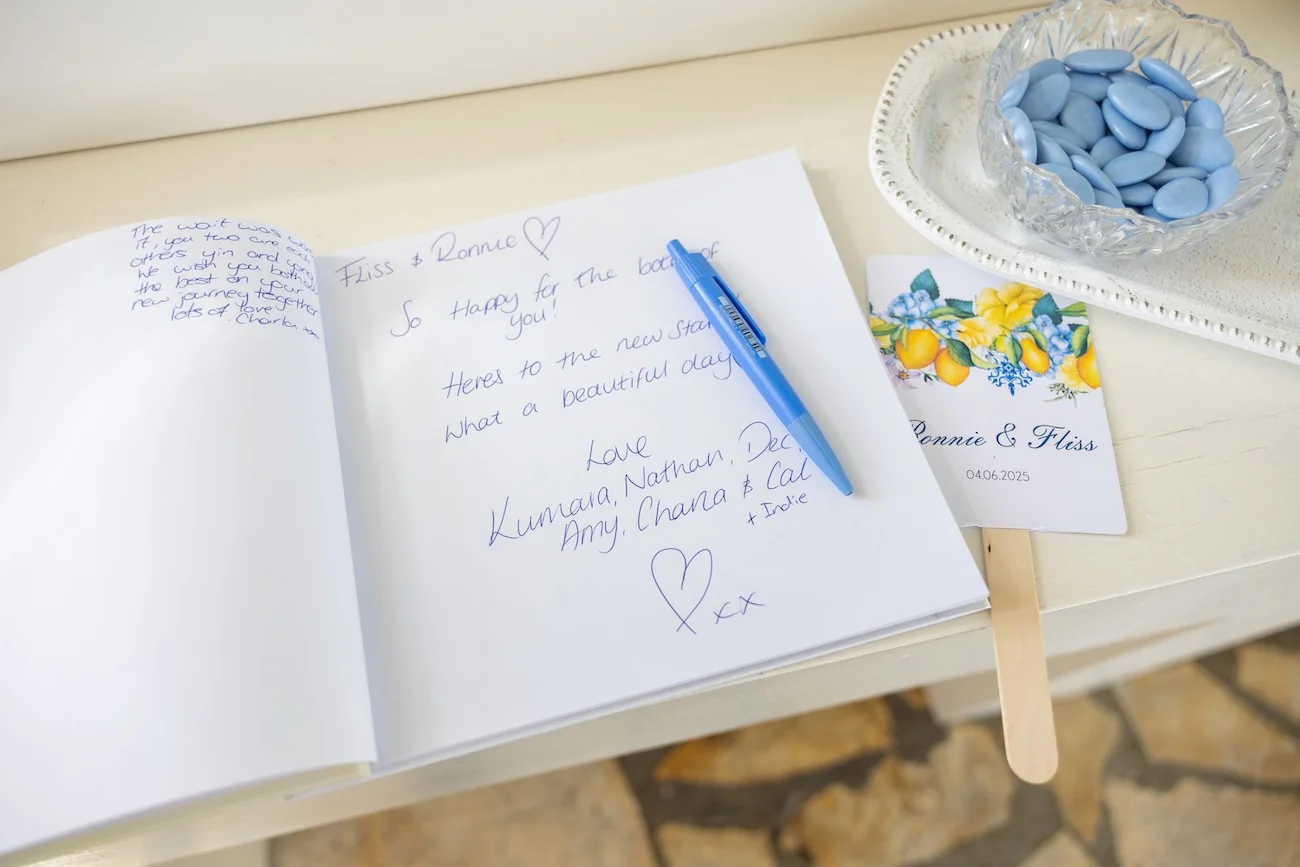 The wait was
it, you two are each
others yin and yang
We wish you both all
the best on your
new journey together
lots of love
Charla
Fliss & Ronnie
So Happy for the both of
you!
Heres to the new star
What a beautiful day
Love
Kumara, Nathan, Dec,
Amy, Chana & Cal
+ Indie
xx
Ronnie & Fliss
04.06.2025